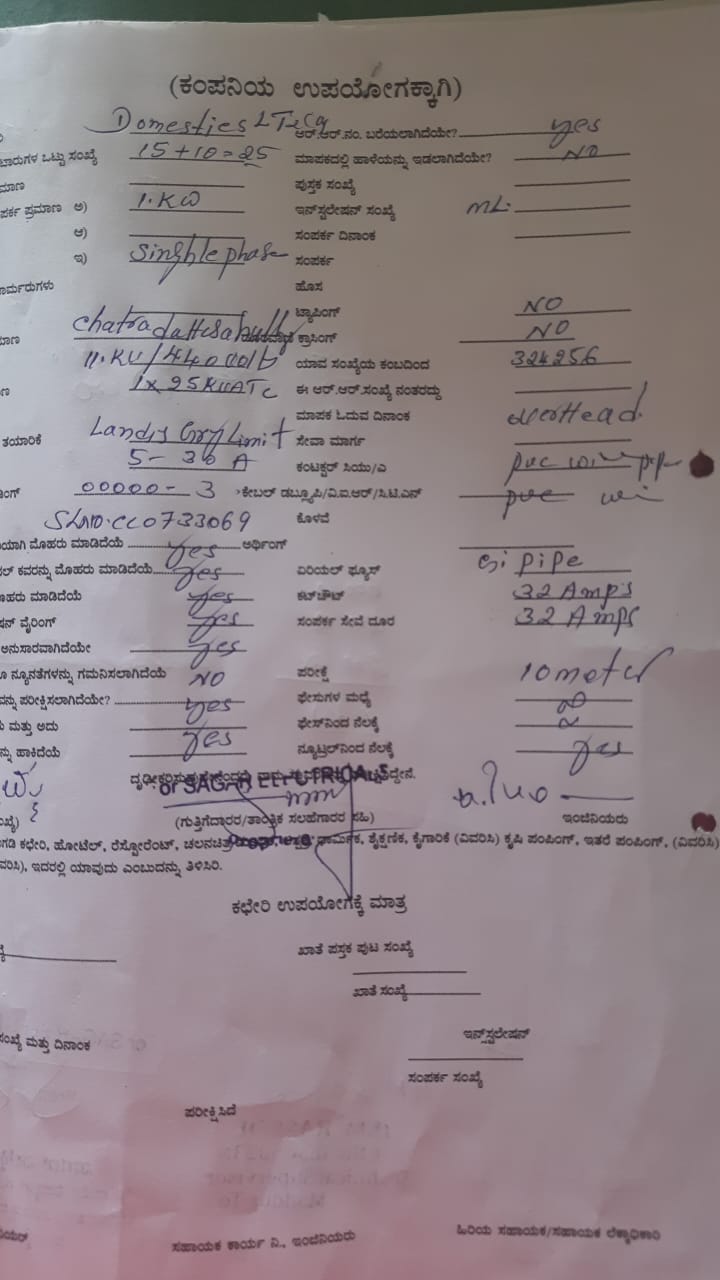 (ಕಂಪನಿಯ ಉಪಯೋಗಕ್ಕಾಗಿ)
Domestics LT2(a) ಆರ್.ಆರ್.ನಂ. ಬರೆಯಲಾಗಿದೆಯೇ? yes
ಟಾರುಗಳ ಒಟ್ಟು ಸಂಖ್ಯೆ 15+10=25 ಮಾಪಕದಲ್ಲಿ ಹಾಳೆಯನ್ನು ಇಡಲಾಗಿದೆಯೇ? NO
ಮಾಣ ಪುಸ್ತಕ ಸಂಖ್ಯೆ
ಪರ್ಕ ಪ್ರಮಾಣ ಅ) 1.KW ಇನ್‌ಸ್ಟಲೇಷನ್ ಸಂಖ್ಯೆ ML:
ಆ) ಸಂಪರ್ಕ ದಿನಾಂಕ
ಇ) Singhle phase ಸಂಪರ್ಕ
ಾರ್ಮರುಗಳು ಹೊಸ
ಟ್ಯಾಪಿಂಗ್ NO
ಮಾಣ ಕ್ರಾಸಿಂಗ್ NO
11.KV/440 volt ಯಾವ ಸಂಖ್ಯೆಯ ಕಂಬದಿಂದ 324256
1x25KVATC ಈ ಆರ್.ಆರ್.ಸಂಖ್ಯೆ ನಂತರದ್ದು
ಮಾಪಕ ಓದುವ ದಿನಾಂಕ overHead
ತಯಾರಿಕೆ Landis Gry Limit ಸೇವಾ ಮಾರ್ಗ
5-30 A ಕಂಟಕ್ಟರ್ ಸಿಯು/ಎ pvc wire pipe
ಿಂಗ್ 00000-3 ಕೇಬಲ್ ಡಬ್ಲ್ಯೂಪಿ/ವಿ.ಐ.ಆರ್/ಸಿ.ಟಿ.ಎಸ್ pvc wi
SLNO.CC0733069 ಕೊಳವೆ
ಯಾಗಿ ಮೊಹರು ಮಾಡಿದೆಯೆ yes ಅರ್ಥಿಂಗ್
ಲ್ ಕವರನ್ನು ಮೊಹರು ಮಾಡಿದೆಯೆ yes ಏರಿಯಲ್ ಫ್ಯೂಸ್ Gi pipe
ೊಹರು ಮಾಡಿದೆಯೆ yes ಕಟ್‌ಔಟ್ 32 Amps
ಷನ್ ವೈರಿಂಗ್ yes ಸಂಪರ್ಕ ಸೇವೆ ದೂರ 32 Amps
ಅನುಸಾರವಾಗಿದೆಯೇ yes
ೂ ನ್ಯೂನತೆಗಳನ್ನು ಗಮನಿಸಲಾಗಿದೆಯೆ NO ಪರೀಕ್ಷೆ 10meter
ವನ್ನು ಪರೀಕ್ಷಿಸಲಾಗಿದೆಯೇ? yes ಫೇಸುಗಳ ಮಧ್ಯೆ ∞
ು ಮತ್ತು ಅದು ಫೇಸ್‌ನಿಂದ ನೆಲಕ್ಕೆ
ನ್ನು ಹಾಕಿದೆಯೆ yes ನ್ಯೂಟ್ರಲ್‌ನಿಂದ ನೆಲಕ್ಕೆ yes
or SAGAR ELECTRICALS
(ಗುತ್ತಿಗೆದಾರರ/ತಾಂತ್ರಿಕ ಸಲಹೆಗಾರರ ಸಹಿ) ಇಂಜಿನಿಯರು
ಗಡಿ ಕಛೇರಿ, ಹೋಟೆಲ್, ರೆಸ್ಟೋರೆಂಟ್, ಚಲನಚಿತ್ರ ಧಾರ್ಮಿಕ, ಶೈಕ್ಷಣಿಕ, ಕೈಗಾರಿಕೆ (ವಿವರಿಸಿ) ಕೃಷಿ ಪಂಪಿಂಗ್, ಇತರೆ ಪಂಪಿಂಗ್, (ವಿವರಿಸಿ)
ವರಿಸಿ), ಇದರಲ್ಲಿ ಯಾವುದು ಎಂಬುದನ್ನು ತಿಳಿಸಿರಿ.
ಕಛೇರಿ ಉಪಯೋಗಕ್ಕೆ ಮಾತ್ರ
ಖಾತೆ ಪಸ್ತಕ ಪುಟ ಸಂಖ್ಯೆ
ಖಾತೆ ಸಂಖ್ಯೆ
ಸಂಖ್ಯೆ ಮತ್ತು ದಿನಾಂಕ ಇನ್ಸ್‌ಸ್ಟಲೇಷನ್
ಸಂಪರ್ಕ ಸಂಖ್ಯೆ
ಪರೀಕ್ಷಿಸಿದೆ
ಸಹಾಯಕ ಕಾರ್ಯ ನಿ., ಇಂಜಿನಿಯರು ಹಿರಿಯ ಸಹಾಯಕ/ಸಹಾಯಕ ಲೆಕ್ಕಾಧಿಕಾರಿ